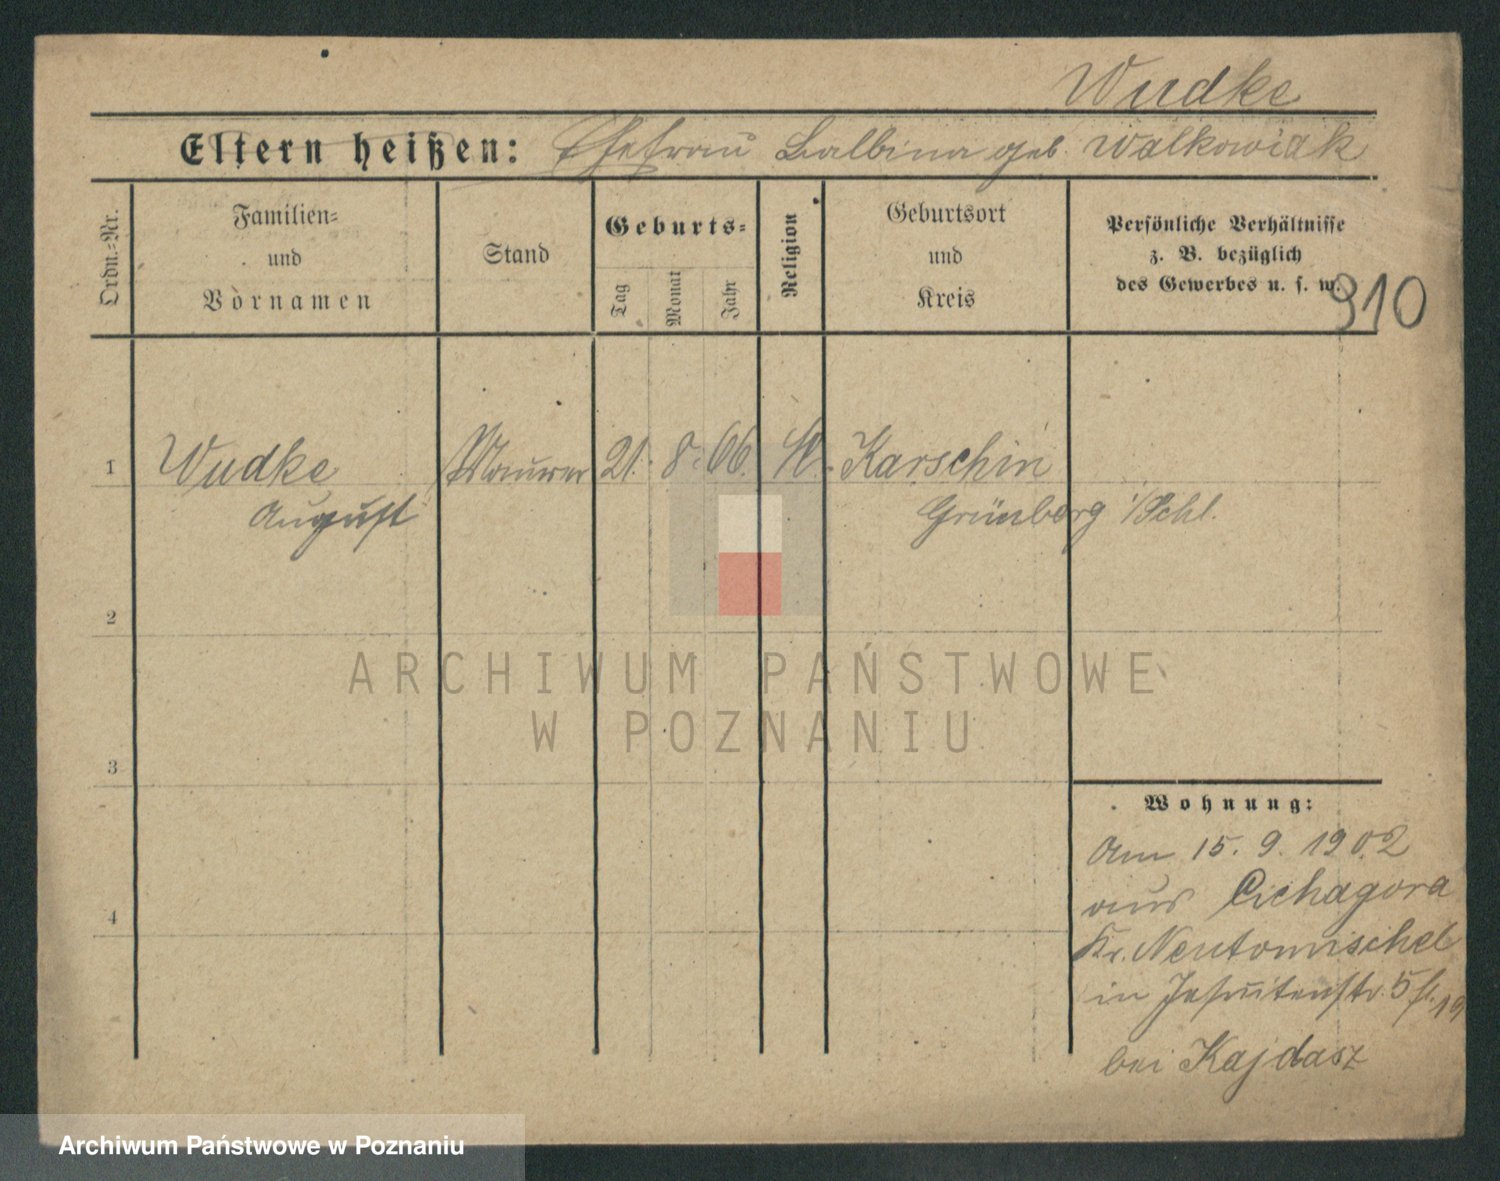 Wudke
Eltern heißen: Ehefrau Balbina geb. Walkowiak
Ordn.-Nr.
Familien-
und
Vornamen
Stand
Geburts-
Tag
Monat
Jahr
Religion
Geburtsort
und
Kreis
Persönliche Verhältnisse
z. B. bezüglich
des Gewerbes u. s. w.
910
1 Wudke Maurer 21. 8. 66. Karschin
August Grünberg i/Schl.
2
3
4
Wohnung:
Am 15. 9. 1902
aus Cichagora
Kr. Neutomischel
in Jesuitenstr. 5
bei Kajdasz
ARCHIWUM PAŃSTWOWE
W POZNANIU
Archiwum Państwowe w Poznaniu